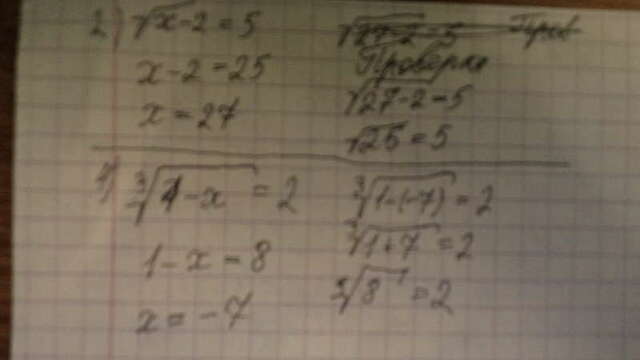 2) √x-2 = 5
x-2=25
x=27
Проверка
√27-2=5
√25=5
4) ∛1-x = 2
1-x=8
x=-7
∛1-(-7)=2
∛1+7=2
∛8=2